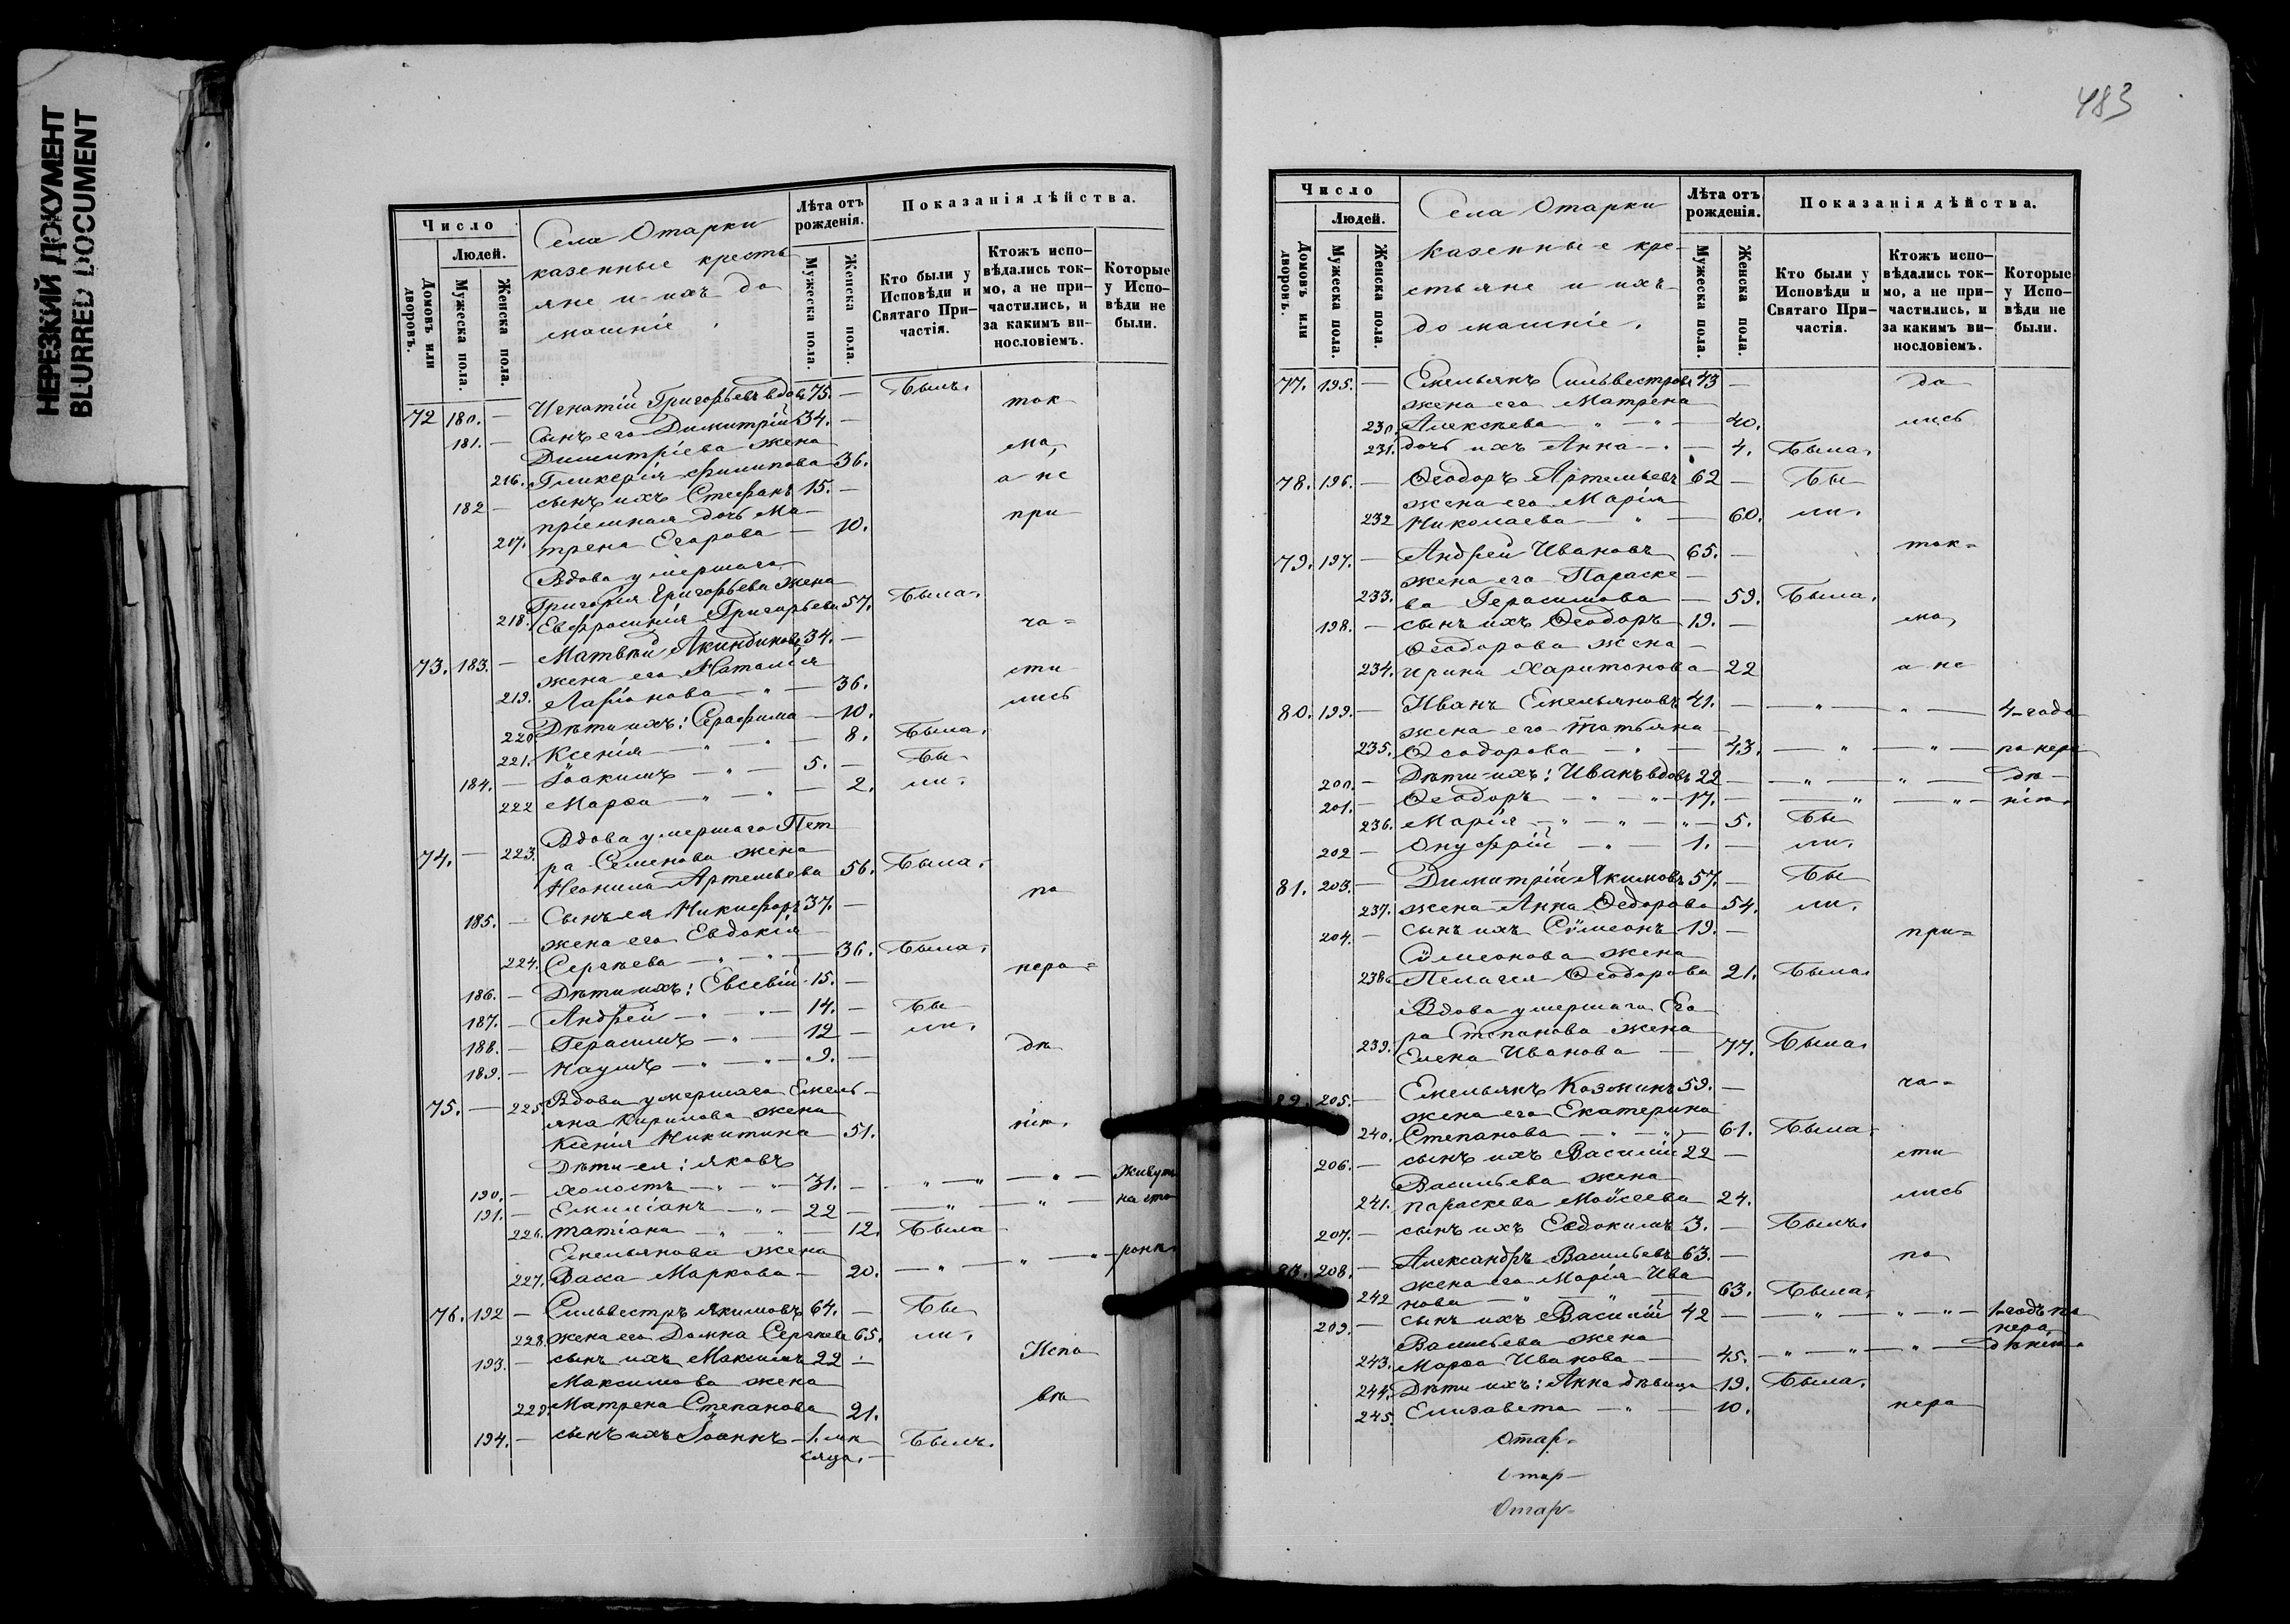 НЕРЕЗКИЙ ДОКУМЕНТ
BLURRED DOCUMENT
Число
Людей.
Домовъ или дворовъ.
Мужеска пола.
Женска пола.
Села Отарки
казенные кресть
яне и ихъ до
машніе.
Лѣта отъ рожденія.
Мужеска пола.
Женска пола.
Показанія дѣйства.
Кто были у Исповѣди и Святаго Причастія.
Ктожъ исповѣдались токмо, а не причастились, и за какимъ винословіемъ.
Которые у Исповѣди не были.
72 180. — Игнатій Григорьевъ вдовъ 75. — Былъ.
ток
181. — Сынъ его Димитрій 34. —
Димитріева жена
мо,
216. Гликерія Филипова 36.
а не
182 — сынъ ихъ Стефанъ 15. —
пріемная дочь Ма-
при
217. трена Егорова — 10.
Вдова умершаго
Григорія Григорьева жена
218. Евфросинія Григорьева 57. Была.
ча=
73. 183. — Матвѣй Акиндиновъ 34. —
жена его Наталія
сти
219. Ларіонова — " — 36.
лись
220 Дѣти ихъ: Серафима — 10.
221. Ксенія — " — " — 8. Была.
184. — Іоакимъ — " — 5. — Бы-
222 Марѳа — " — " — 2. ли.
Вдова умершаго Пет
74. — 223. ра Семенова жена
Неонила Артемьева 56. Была.
по
185. — Сынъ ея Никифоръ 37. —
жена его Евдокія
224. Сергѣева — " — " — 36. Была.
нера=
186. — Дѣти ихъ: Евсевій 15. —
187. — Андрей — " — " — 14. — Бы
188. — Герасимъ — " — 12 — ли.
189. — Наумъ — " — " — 9. —
дѣ
Вдова умершаго Емель-
75. — 225. яна Кирилова жена
нію.
Ксенія Никитина 51.
Дѣти ея: Яковъ
190. — холостъ — " — " — 31. — " — " — " — Живутъ
191. — Емиліанъ — " — 22 — " — " — на сто
226. Татіана — " — " — 12. Была
Емельянова жена
227. Васса Маркова — 20. — " — " — " — ронѣ.
76. 192 — Сильвестръ Якимовъ 64. — Бы
228. жена его Домна Сергѣева 65. ли.
193. — сынъ ихъ Максимъ 22 —
Испо
Максимова жена
229. Матрена Степанова 21.
вѣ
194. — сынъ ихъ Іоаннъ — 1. мѣ Былъ.
сяца. —
483
Число
Людей.
Домовъ или дворовъ.
Мужеска пола.
Женска пола.
Села Отарки
казенные кре-
стьяне и ихъ
домашніе.
Лѣта отъ рожденія.
Мужеска пола.
Женска пола.
Показанія дѣйства.
Кто были у Исповѣди и Святаго Причастія.
Ктожъ исповѣдались токмо, а не причастились, и за какимъ винословіемъ.
Которые у Исповѣди не были.
77. 195. — Емельянъ Сильвестровъ 43 — да
жена его Матрена
230. Алексѣева — " — " — 40. лись
231. дочь ихъ Анна — " — 4. Была.
78. 196. — Ѳеодоръ Артемьевъ 62 — Бы
жена его Марія
232 Николаева — " — 60. ли.
79. 197. — Андрей Ивановъ 65. — ток=
жена его Параске-
233. ва Герасимова — 59. Была.
198. — сынъ ихъ Ѳеодоръ 19. — мо,
Ѳеодорова жена
234. Ирина Харитонова 22 а не
80. 199. — Иванъ Емельяновъ 41. — " — " — 4-года
жена его Татьяна
235. Ѳеодорова — " — 43. — " — " — по нера
200. — Дѣти ихъ: Иванъ вдовъ 22 — " — " — дѣ-
201. — Ѳеодоръ — " — " — 17. — " — " — нію.
236. Марія — " — " — " — 5. Бы
202 — Онуфрій — " — 1. — ли.
81. 203. — Димитрій Якимовъ 57. — Бы
237. жена Анна Ѳедорова 54. ли.
204. — сынъ ихъ Сѵмеонъ 19. — при=
Сѵмеонова жена
238. Пелагея Ѳеодорова 21. Была.
Вдова умершаго Его
ра Степанова жена
239. Елена Иванова — 77. Была.
82. 205. — Емельянъ Козминъ 59. — ча=
жена его Екатерина
240. Степанова — " — " — 61. Была.
206. — сынъ ихъ Василій 22 — сти
Васильева жена
241. Параскева Моѵсеева 24. лись
207. — сынъ ихъ Евдокимъ 3. — Былъ.
83. 208. — Александръ Васильевъ 63. — по
жена его Марія Ива
242 нова — " — " — 63. Была.
209. — сынъ ихъ Василій 42 — " — " — " — 1-годъ по
нера
Васильева жена
243. Марѳа Иванова — 45. — " — " — " — дѣнію.
244. Дѣти ихъ: Анна дѣвица 19. Была.
245. Елизавета — " — 10. нера
Отар=
Отар—
Отар=